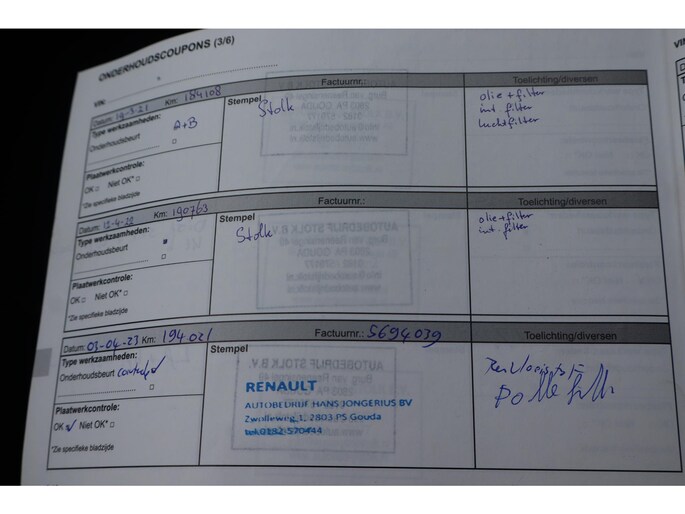 ONDERHOUDSCOUPONS (3/6)
VIN:
Datum: 19-3-21 Km: 184108
Factuurnr.:
Toelichting/diversen
Type werkzaamheden:
Onderhoudsbeurt
A+B
Stempel
Stolk
olie + filter
int filter
luchtfilter
Plaatwerkcontrole:
OK □ Niet OK* □
*Zie specifieke bladzijde
Datum: 12-4-22 Km: 190763
Factuurnr.:
Toelichting/diversen
Type werkzaamheden:
Onderhoudsbeurt
Stempel
Stolk
olie + filter
int. filter
Plaatwerkcontrole:
OK □ Niet OK* □
*Zie specifieke bladzijde
Datum: 03-04-23 Km: 194021
Factuurnr.: 5694039
Toelichting/diversen
Type werkzaamheden:
Onderhoudsbeurt
Stempel
RENAULT
AUTOBEDRIJF HANS JONGERIUS BV
Zwolleweg 1, 2803 PS Gouda
tel.0182-570444
Plaatwerkcontrole:
OK ✓ Niet OK* □
*Zie specifieke bladzijde
VIN